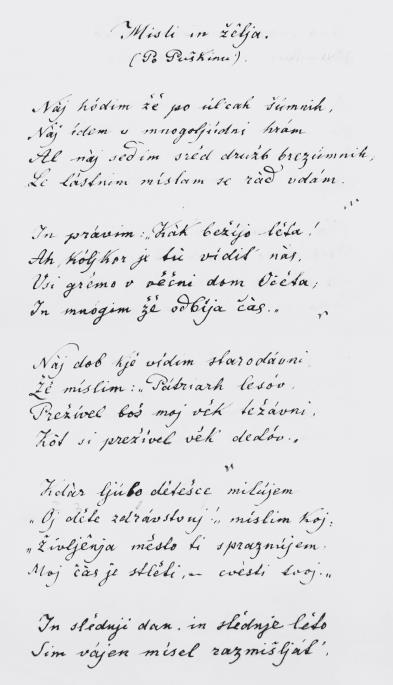 Misli in žělja.
(Po Puškinu).
Naj hódim žě po úlcah šúmnih,
Naj ídem v mnogoljúdni hrám
Al naj sedím sréd družb brezúmnih,
Le lástnim míslam se ràd vdám.
In právim: „Kak bežíjo léta!
Ah, kóljkor je tù vídit nàs,
Vsi grémo v věčni dom Očéta,
In mnógim žě odbíja čàs.“
Naj dob kjé vídim starodávni,
Žě míslim: „Pátriarh lesóv,
Prežível boš moj vék težávni,
Kòt si prežível vék dedóv.“
Kdàr ljúbo détešce milújem
„Oj déte zdrávstvuj!“ míslim koj;
„Življénja město ti spraznújem.
Moj čàs je tléti, — cvésti tvoj.“
In slédnji dan, in slédnje léto
Sim vájen mísel razmíšlját',